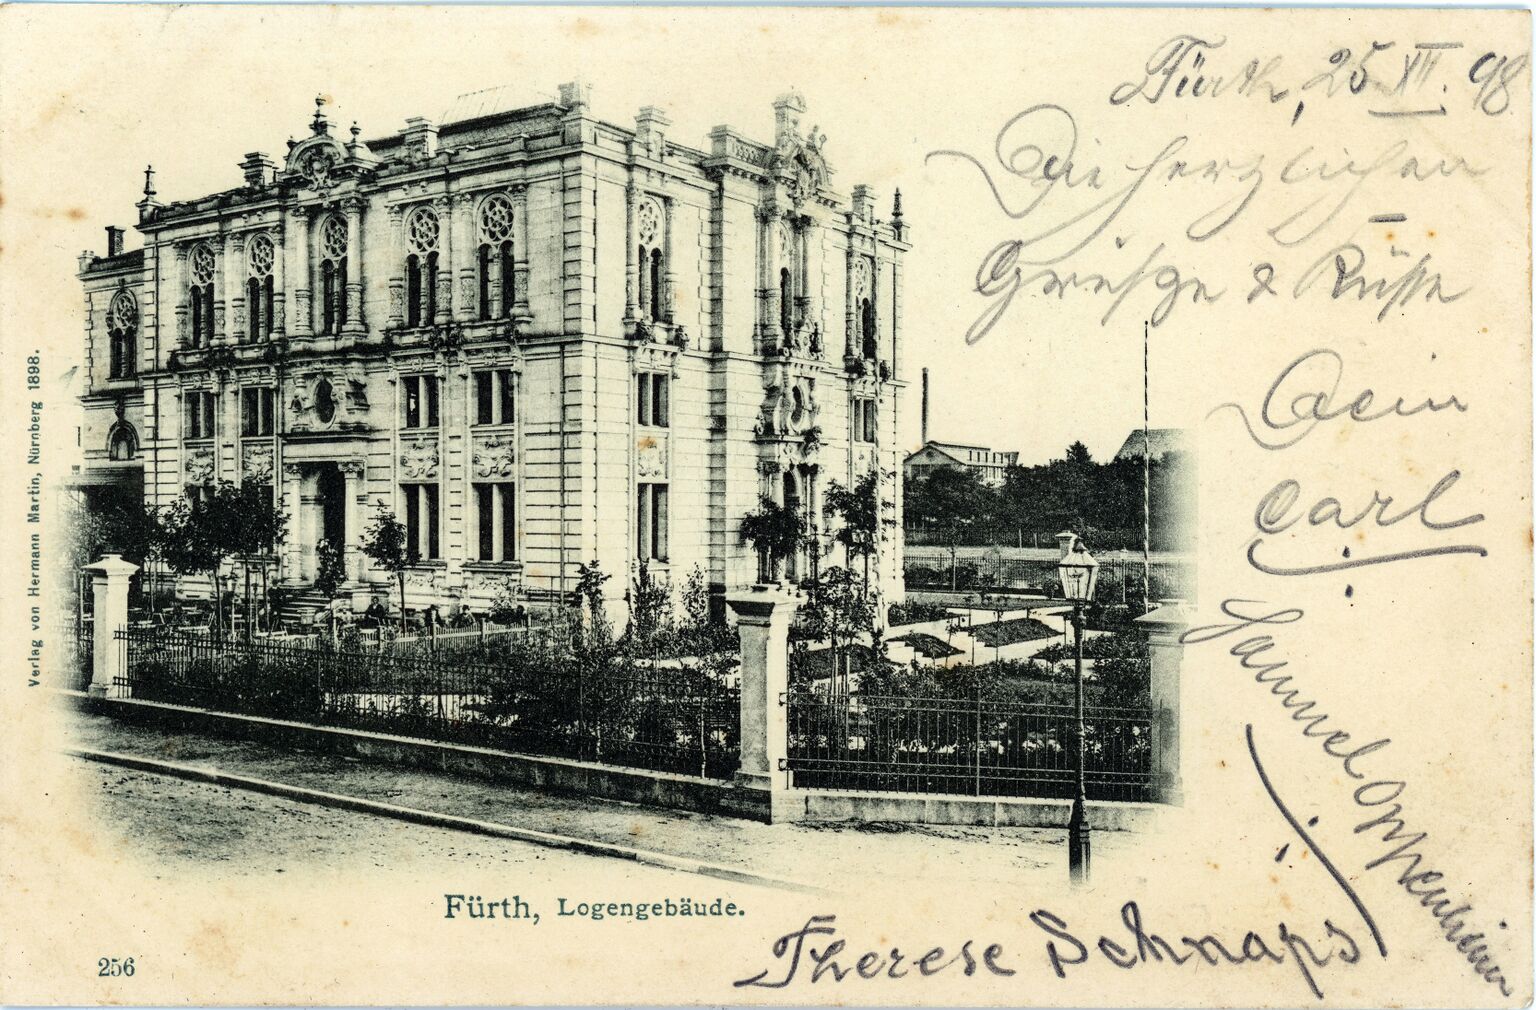 Fürth, 25. XII. 98
Die herzlichsten
Grüsse & Küsse
Dein
Carl
Samuel Oppenheimer
Therese Schnaps
Fürth, Logengebäude.
256
Verlag von Hermann Martin, Nürnberg 1898.